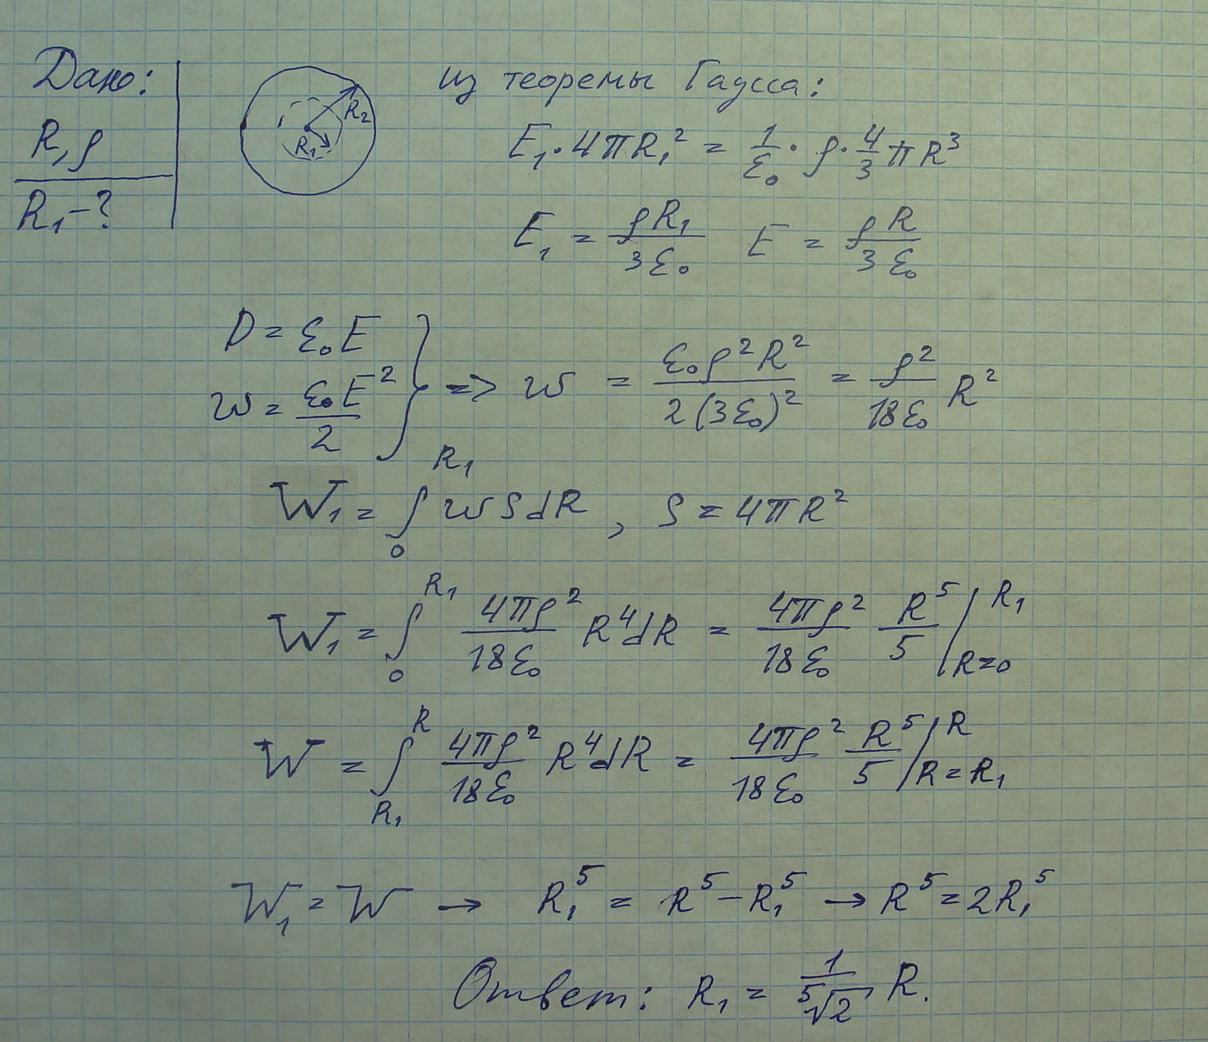 Дано:
R, ρ
R₁ - ?
R₁
R₂
из теоремы Гаусса:
E₁ · 4πR₁² = 1/ε₀ · ρ · 4/3 πR³
E₁ = ρR₁/3ε₀ E = ρR/3ε₀
D = ε₀E
w = ε₀E²/2 } => w = ε₀ρ²R²/2(3ε₀)² = ρ²/18ε₀ R²
W₁ = ∫₀^R₁ w S dR , S = 4πR²
W₁ = ∫₀^R₁ 4πρ²/18ε₀ R⁴dR = 4πρ²/18ε₀ R⁵/5 |_R=0^R₁
W = ∫_R₁^R 4πρ²/18ε₀ R⁴dR = 4πρ²/18ε₀ R⁵/5 |_R=R₁^R
W₁ = W → R₁⁵ = R⁵ - R₁⁵ → R⁵ = 2R₁⁵
Ответ: R₁ = 1/⁵√2 R.